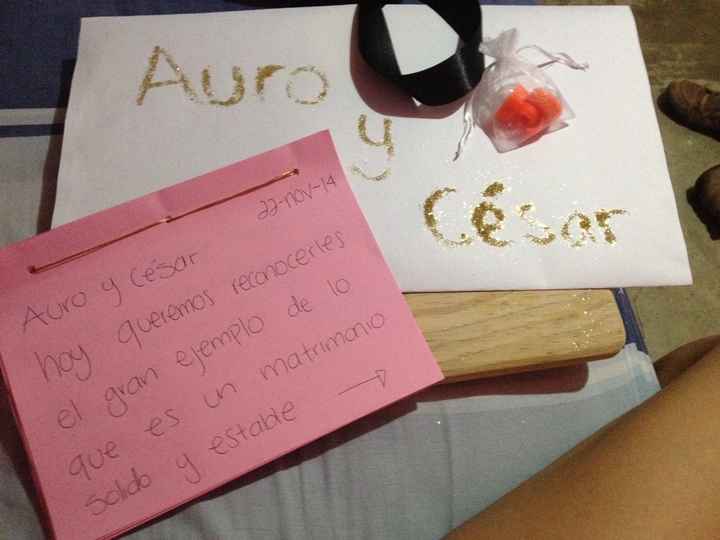 Auro
y
César
22-nov-14
Auro y César
hoy queremos reconocerles
el gran ejemplo de lo
que es un matrimonio
solido y estable →